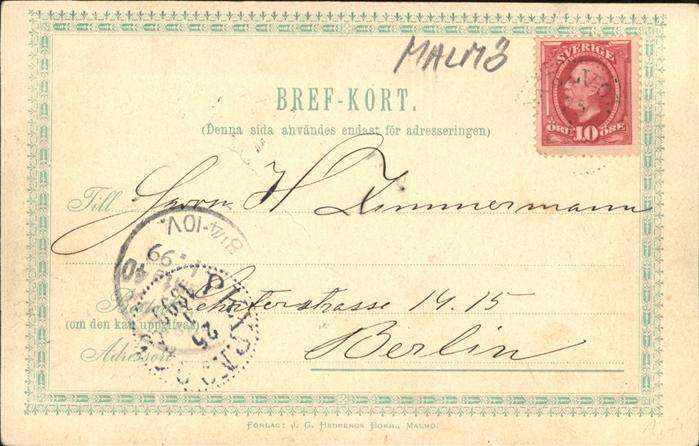 MALMÖ
SVERIGE
ÖRE 10 ÖRE
BREF-KORT.
(Denna sida användes endast för adresseringen)
Till Herrn H Zimmermann
14.15
(om den kan uppgifvas)
Adressort Berlin
8¼-10V.
99
40
25
FÖRLAG: J. G. HEDBERGS BOKH., MALMÖ.